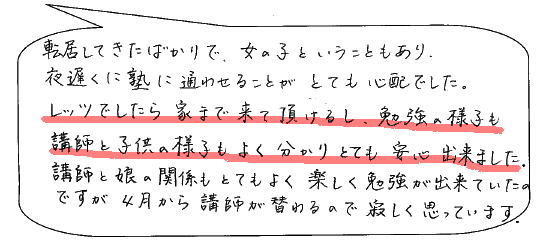 転居してきたばかりで、女の子ということもあり、
夜遅くに塾に通わせることがとても心配でした。
レッツでしたら家まで来て頂けるし、勉強の様子も
講師と子供の様子もよく分かりとても安心出来ました。
講師と娘の関係もとてもよく楽しく勉強が出来ていたの
ですが4月から講師が替わるので寂しく思っています。